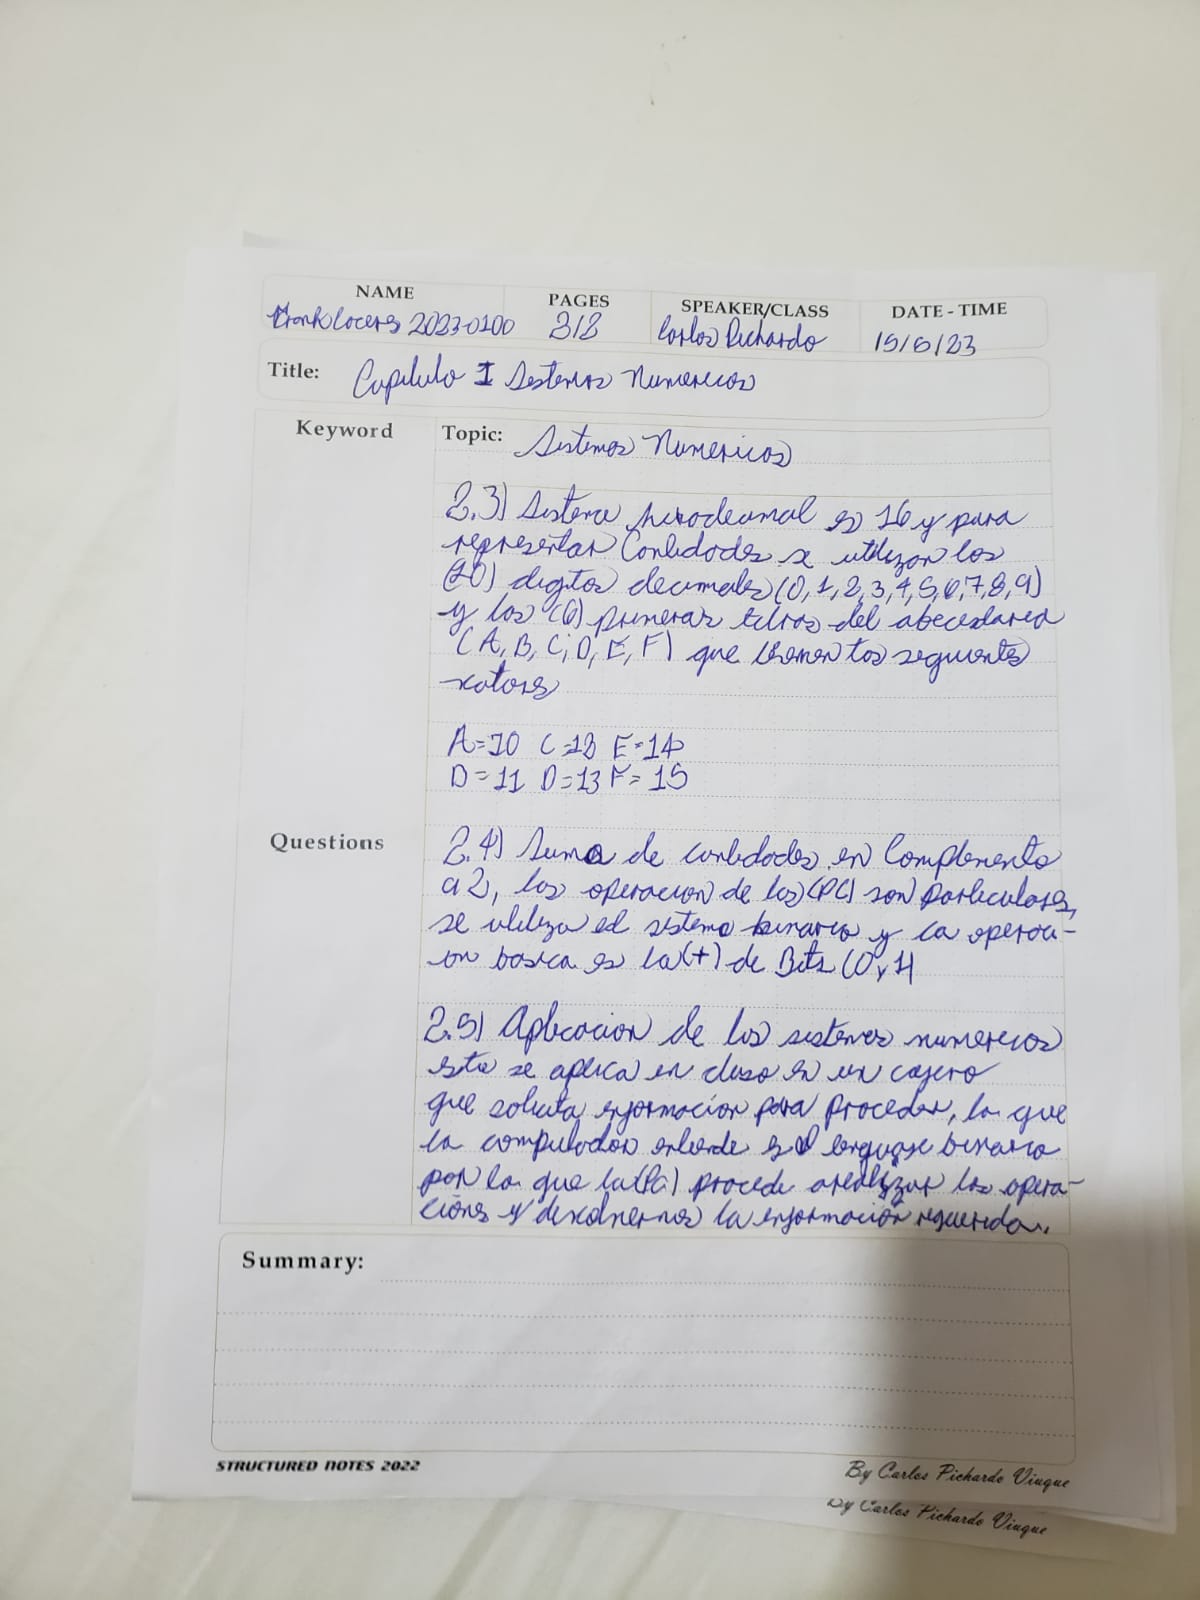 NAME PAGES SPEAKER/CLASS DATE - TIME
2023-0100 2/2 Carlos Pichardo 15/6/23
Title: Capitulo I Sistemas Numericos
Keyword Topic: Sistemas Numericos
2.3) Sistema hexadecimal es 16 y para
representar Cantidades se utilizan los
(10) digitos decimales (0,1,2,3,4,5,6,7,8,9)
y las (6) primeras letras del abecedario
(A, B, C, D, E, F) que tienen los siguientes
A=10 C=12 E=14
B=11 D=13 F=15
Questions
2.4) Suma de cantidades en Complemento
a 2, las operacion de las (PC) son particulares,
se utiliza el sistema binario y la operaci-
on basica es la (+) de Bits (0 y 1)
2.5) Aplicacion de los sistemas numericos
esta se aplica en en un cajero
que solicita informacion para proceder, lo que
la computador entiende es el lenguaje binario
por lo que la (PC) procede a realizar las opera-
ciones y devolvernos la informacion requerida.
Summary:
STRUCTURED NOTES 2022
By Carlos Pichardo Viuque
By Carlos Pichardo Viuque